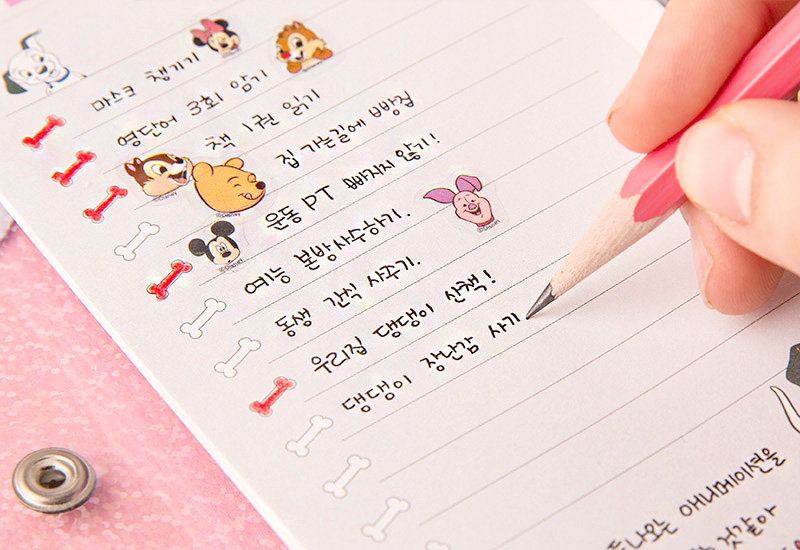 마스크 챙기기
영단어 3회 암기
책 1권 읽기
집 가는길에 빵집
운동 PT 빠지지 않기!
예능 본방사수하기.
동생 간식 사주기.
우리집 댕댕이 산책!
댕댕이 장난감 사기
나오는 애니메이션을
것같아
©Disney
©Disney
©Disney
©Disney